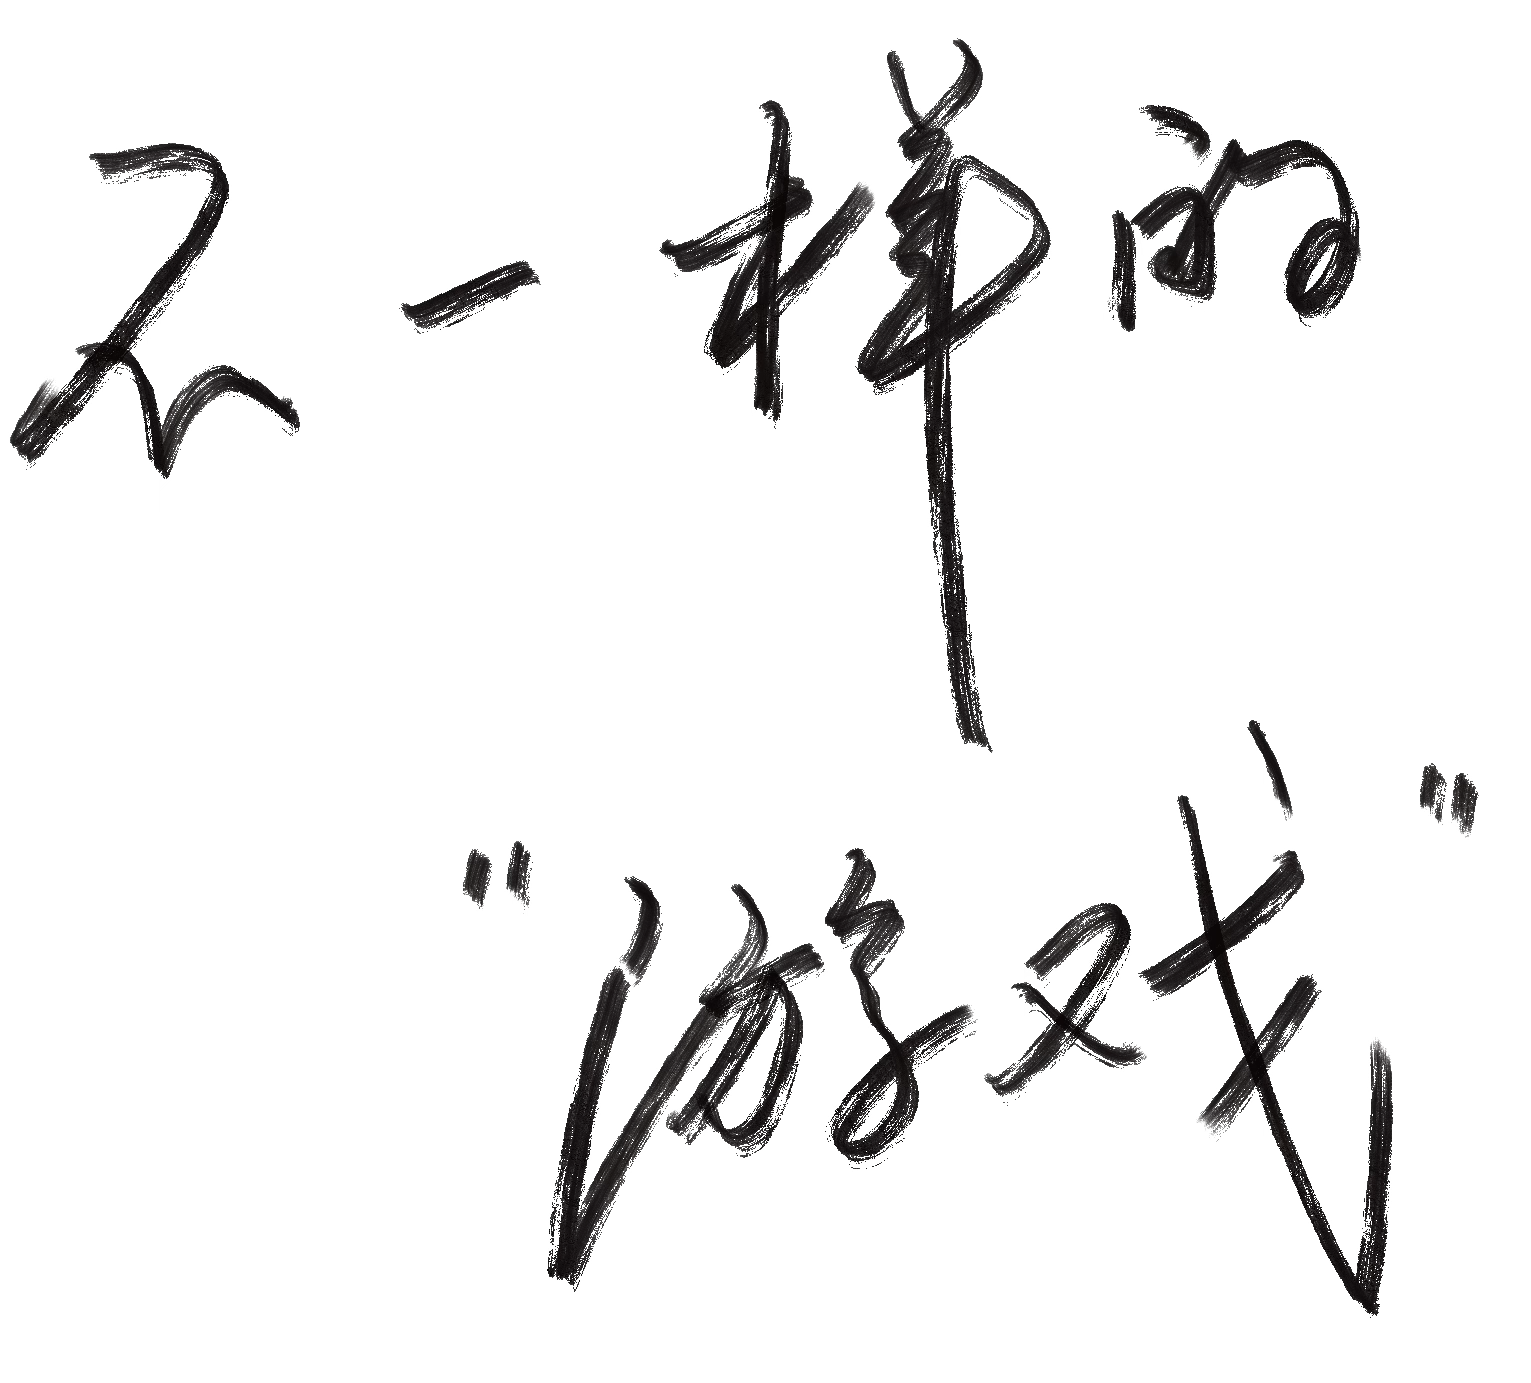 不一样的
"游戏"